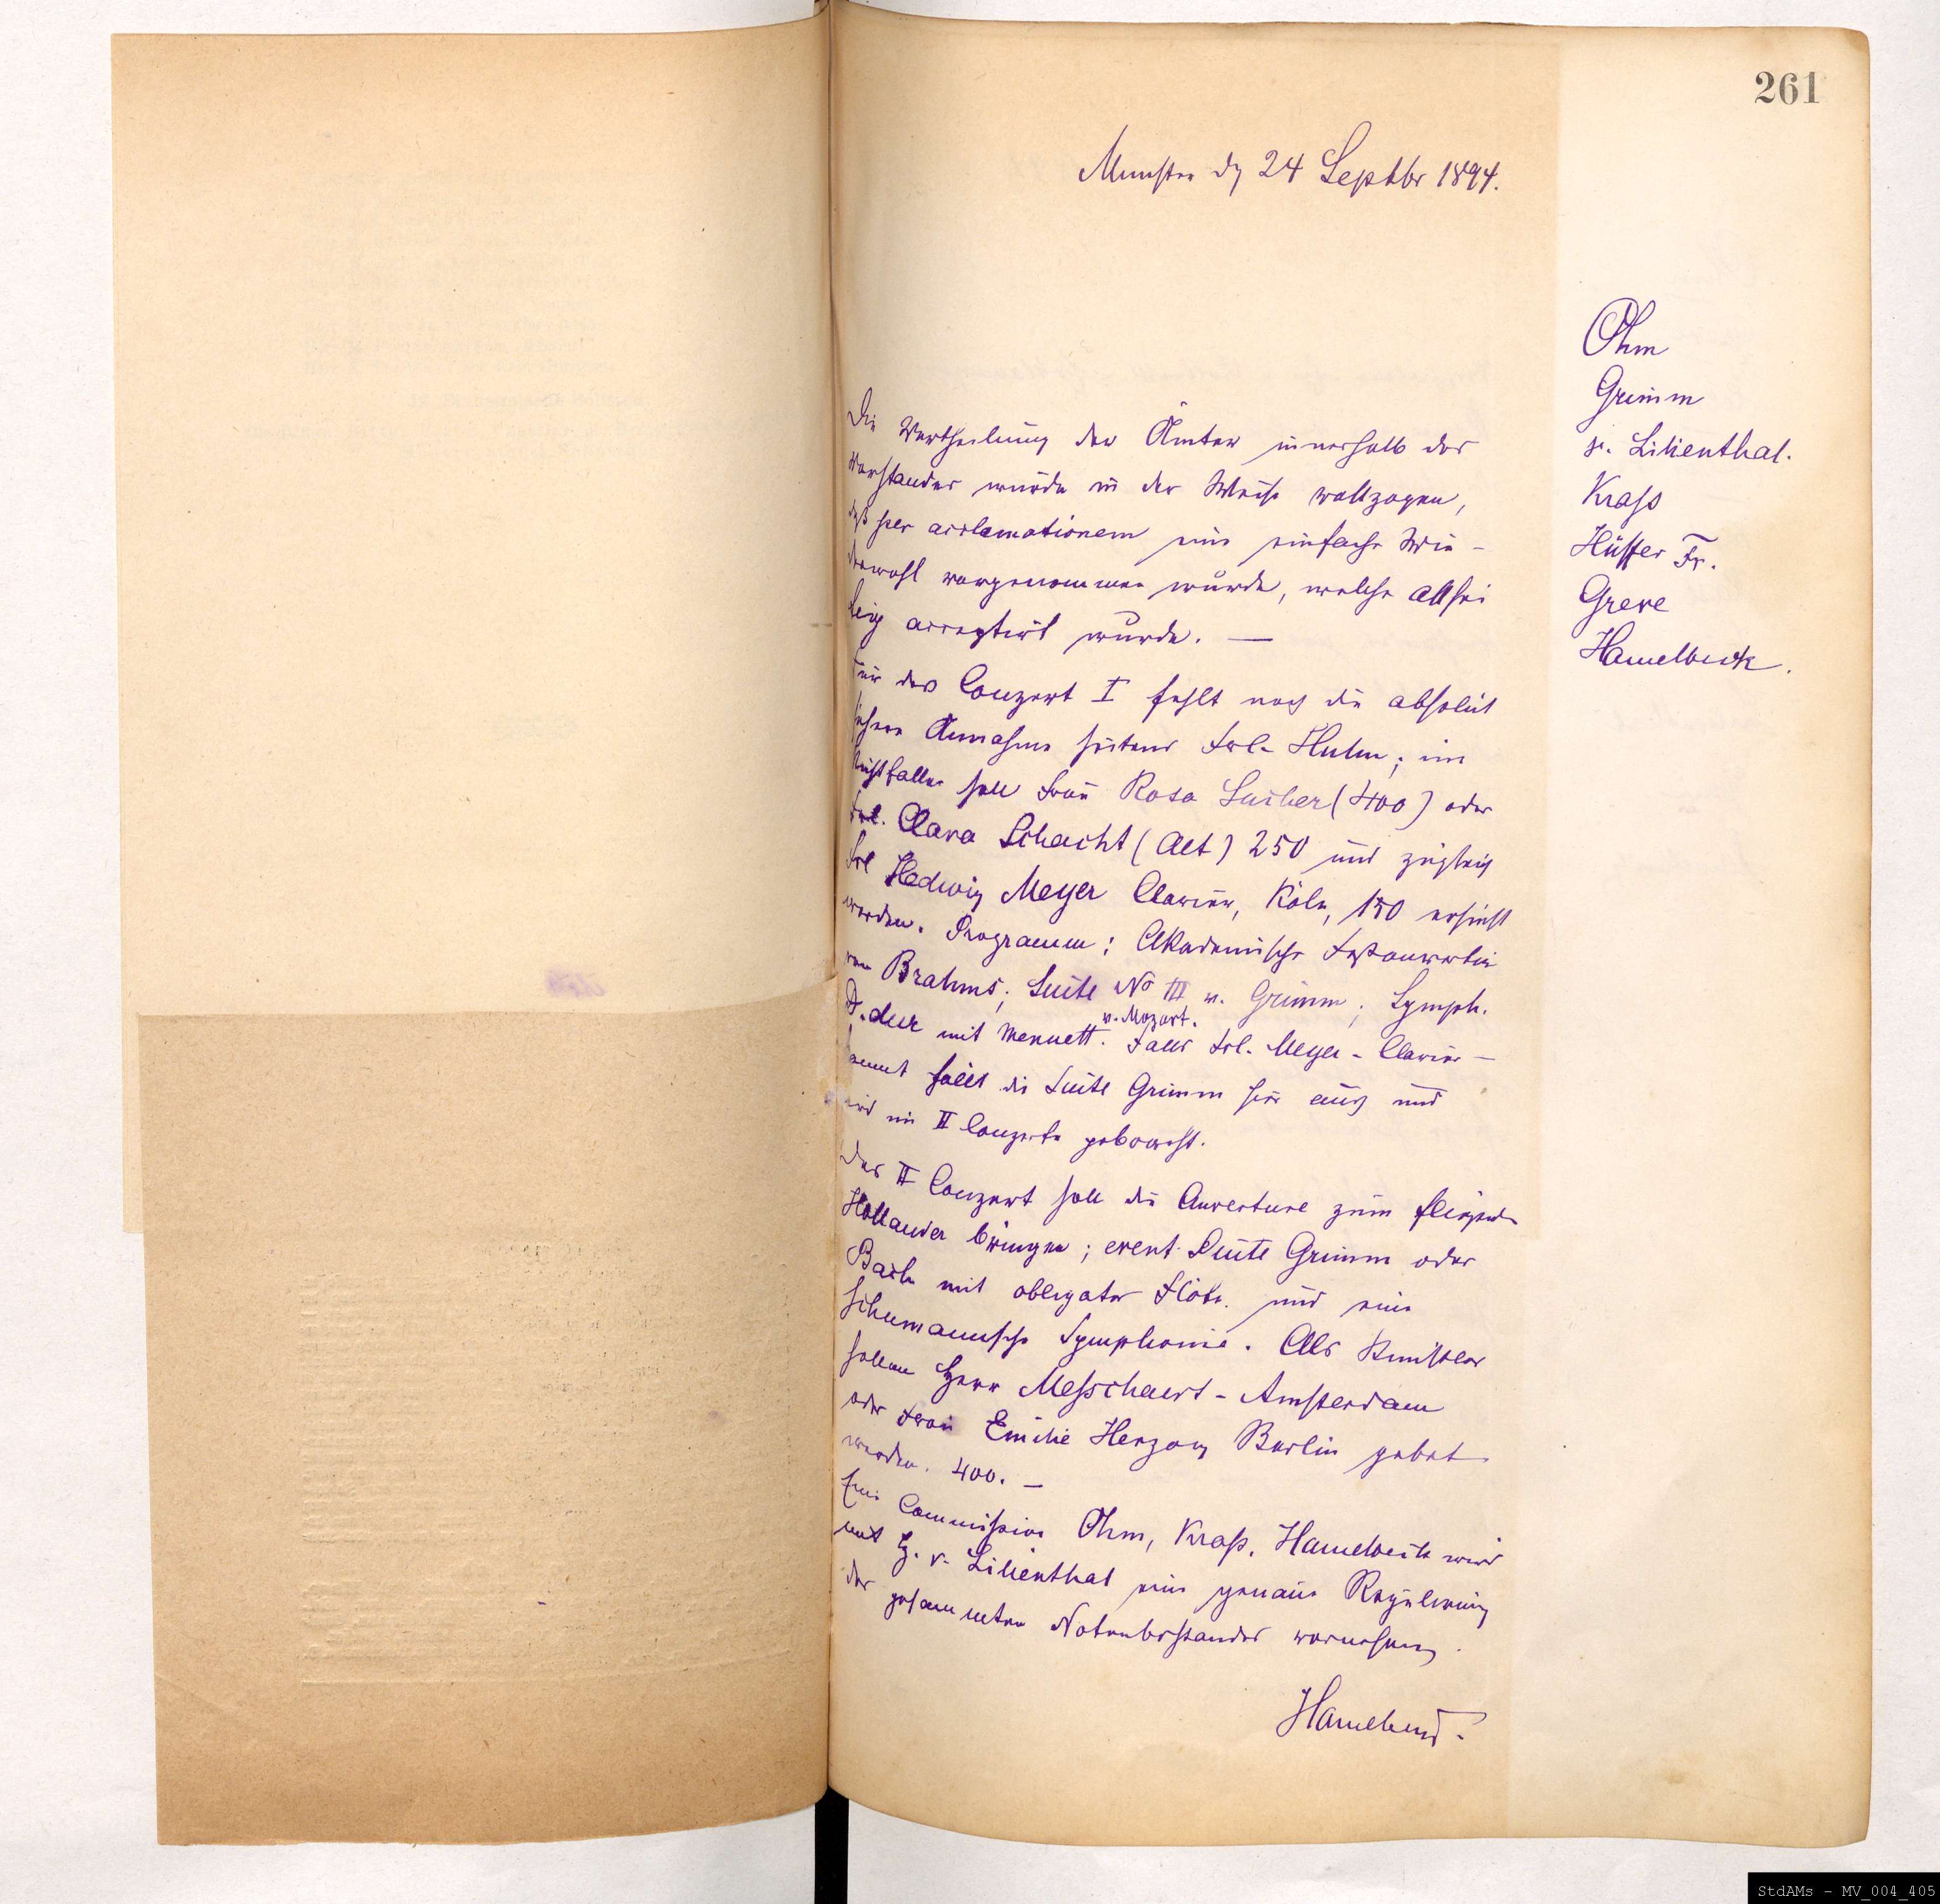 261
Munster dn 24 Septbr 1894.
Ohm
Grimm
v. Lilienthal.
Krass
Hüffer Fr.
Greve
Hamelbeck.
Die Vertheilung der Ämter innerhalb des
Vorstandes wurde in der Weise vollzogen,
daß per acclamationem eine einfache Wie-
derwahl vorgenommen wurde, welche allsei
tig acceptirt wurde. —
Für das Conzert I fehlt noch die absolut
sichere Annahme seitens Frl. Huhn; im
Nichtfalle soll Frau Rosa Sucher (400) oder
Frl. Clara Schacht (Alt) 250 und zugleich
Frl Hedwig Meyer Clavier, Köln, 150 ersucht
werden. Programm: Akademische Festouvertüre
von Brahms; Suite No III v. Grimm; Symph.
D. dur mit Menuett v. Mozart. Falls Frl. Meyer - Clavier -
kommt fällt die Suite Grimm hier aus und
wird im II Conzerte gebracht.
Das II Conzert soll die Ouverture zum fliegenden
Hollander bringen; event. Suite Grimm oder
Bach mit obligater Flöte. und eine
Schumannsche Symphonie. Als Künstler
sollen Herr Messchaert - Amsterdam
oder Frau Emilie Herzog Berlin gebeten
werden. 400. —
Eine Commission Ohm, Krass, Hamelbeck wird
mit H. v. Lilienthal eine genaue Regulirung
des gesammten Notenbestandes vornehmen.
Hamelbeck.
StdAMs - MV_004_405